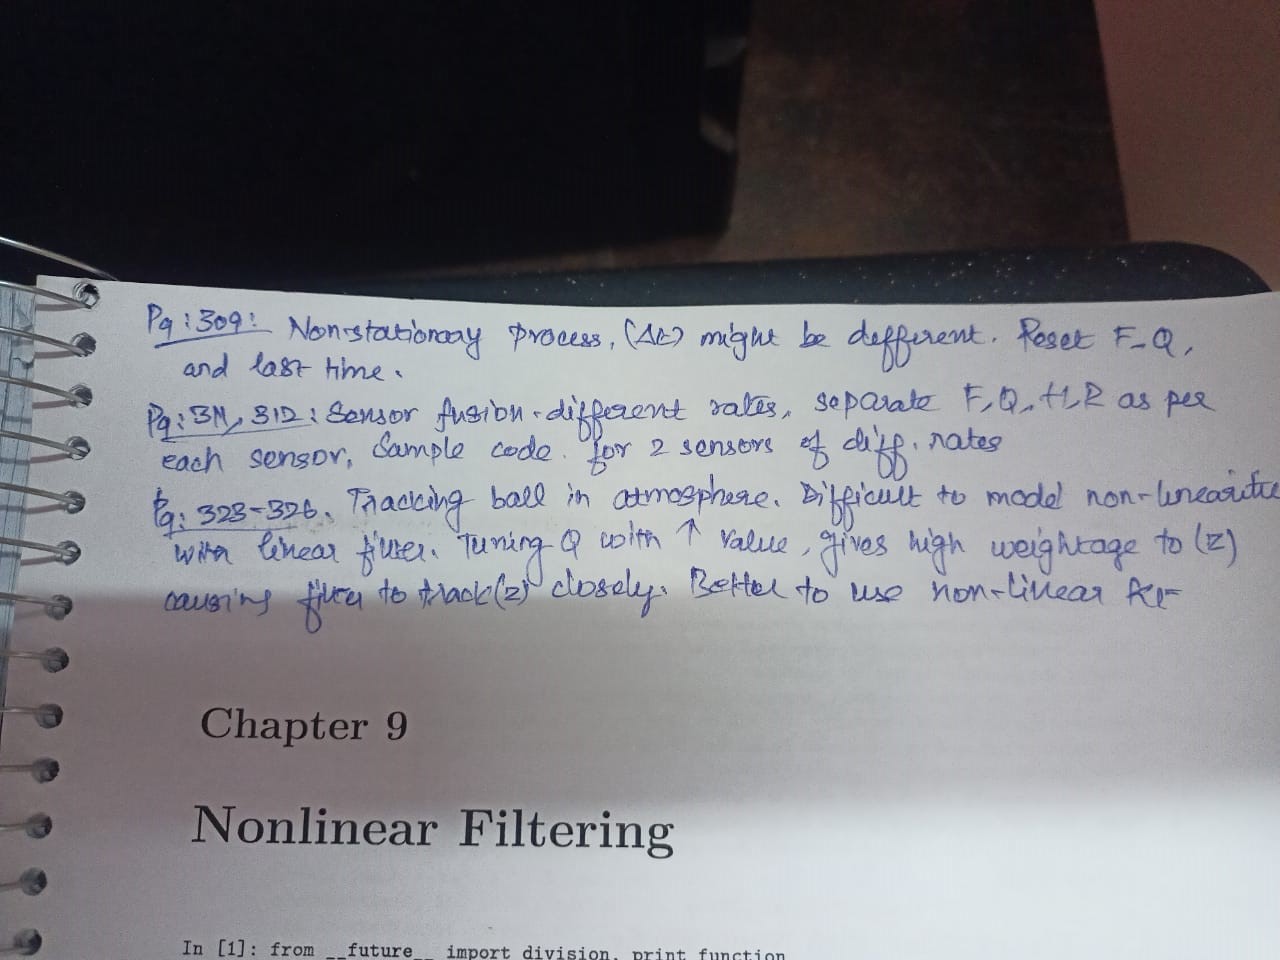 Pg: 309: Non-stationary process, (Δt) might be different. Reset F-Q,
and last time.
Pg: 311, 312: Sensor fusion - different rates, separate F, Q, H, R as per
each sensor, Sample code for 2 sensors of diff. rates
Pg: 323-326. Tracking ball in atmosphere. Difficult to model non-linearities
with linear filter. Tuning Q with ↑ value, gives high weightage to (z)
causing filter to track (z) closely. Better to use non-linear KF
Chapter 9
Nonlinear Filtering
In [1]: from __future__ import division, print_function